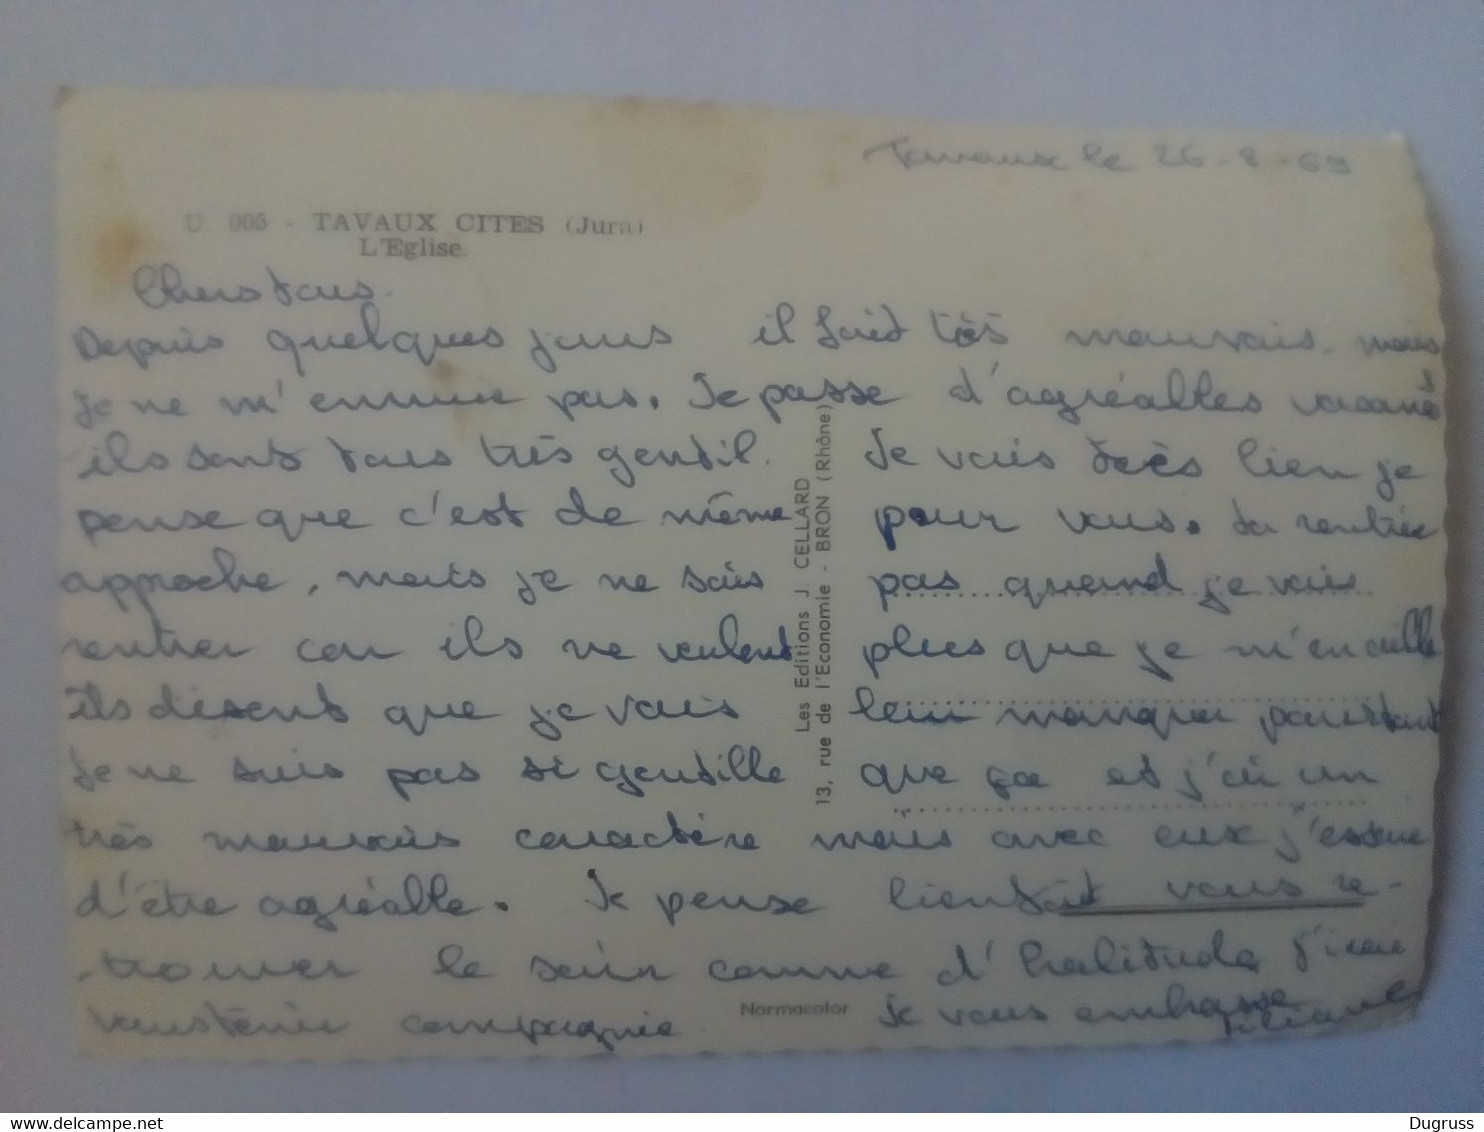 Tavaux le 26-8-69
U 005 - TAVAUX CITES (Jura)
L'Eglise.
Chers tous.
Depuis quelques jours il fait très mauvais. mais
je ne m'ennuie pas. Je passe d'agréables vacances
ils sont tous très gentil. Je vais très bien je
pense que c'est de même pour vous. La rentrée
approche, mais je ne sais pas quand je vais
rentrer car ils ne veulent plus que je m'en aille
ils disent que je vais leur manquer pourtant
Je ne suis pas si gentille que ça et j'ai un
très mauvais caractère mais avec eux j'essaie
d'être agréable. Je pense bientôt vous re-
trouver le soir comme d'habitude j'irai
vous tenir compagnie. Je vous embrasse
Liliane
Les Editions J. CELLARD
13, rue de l'Economie - BRON (Rhône)
Normacolor
delcampe.net
Dugruss